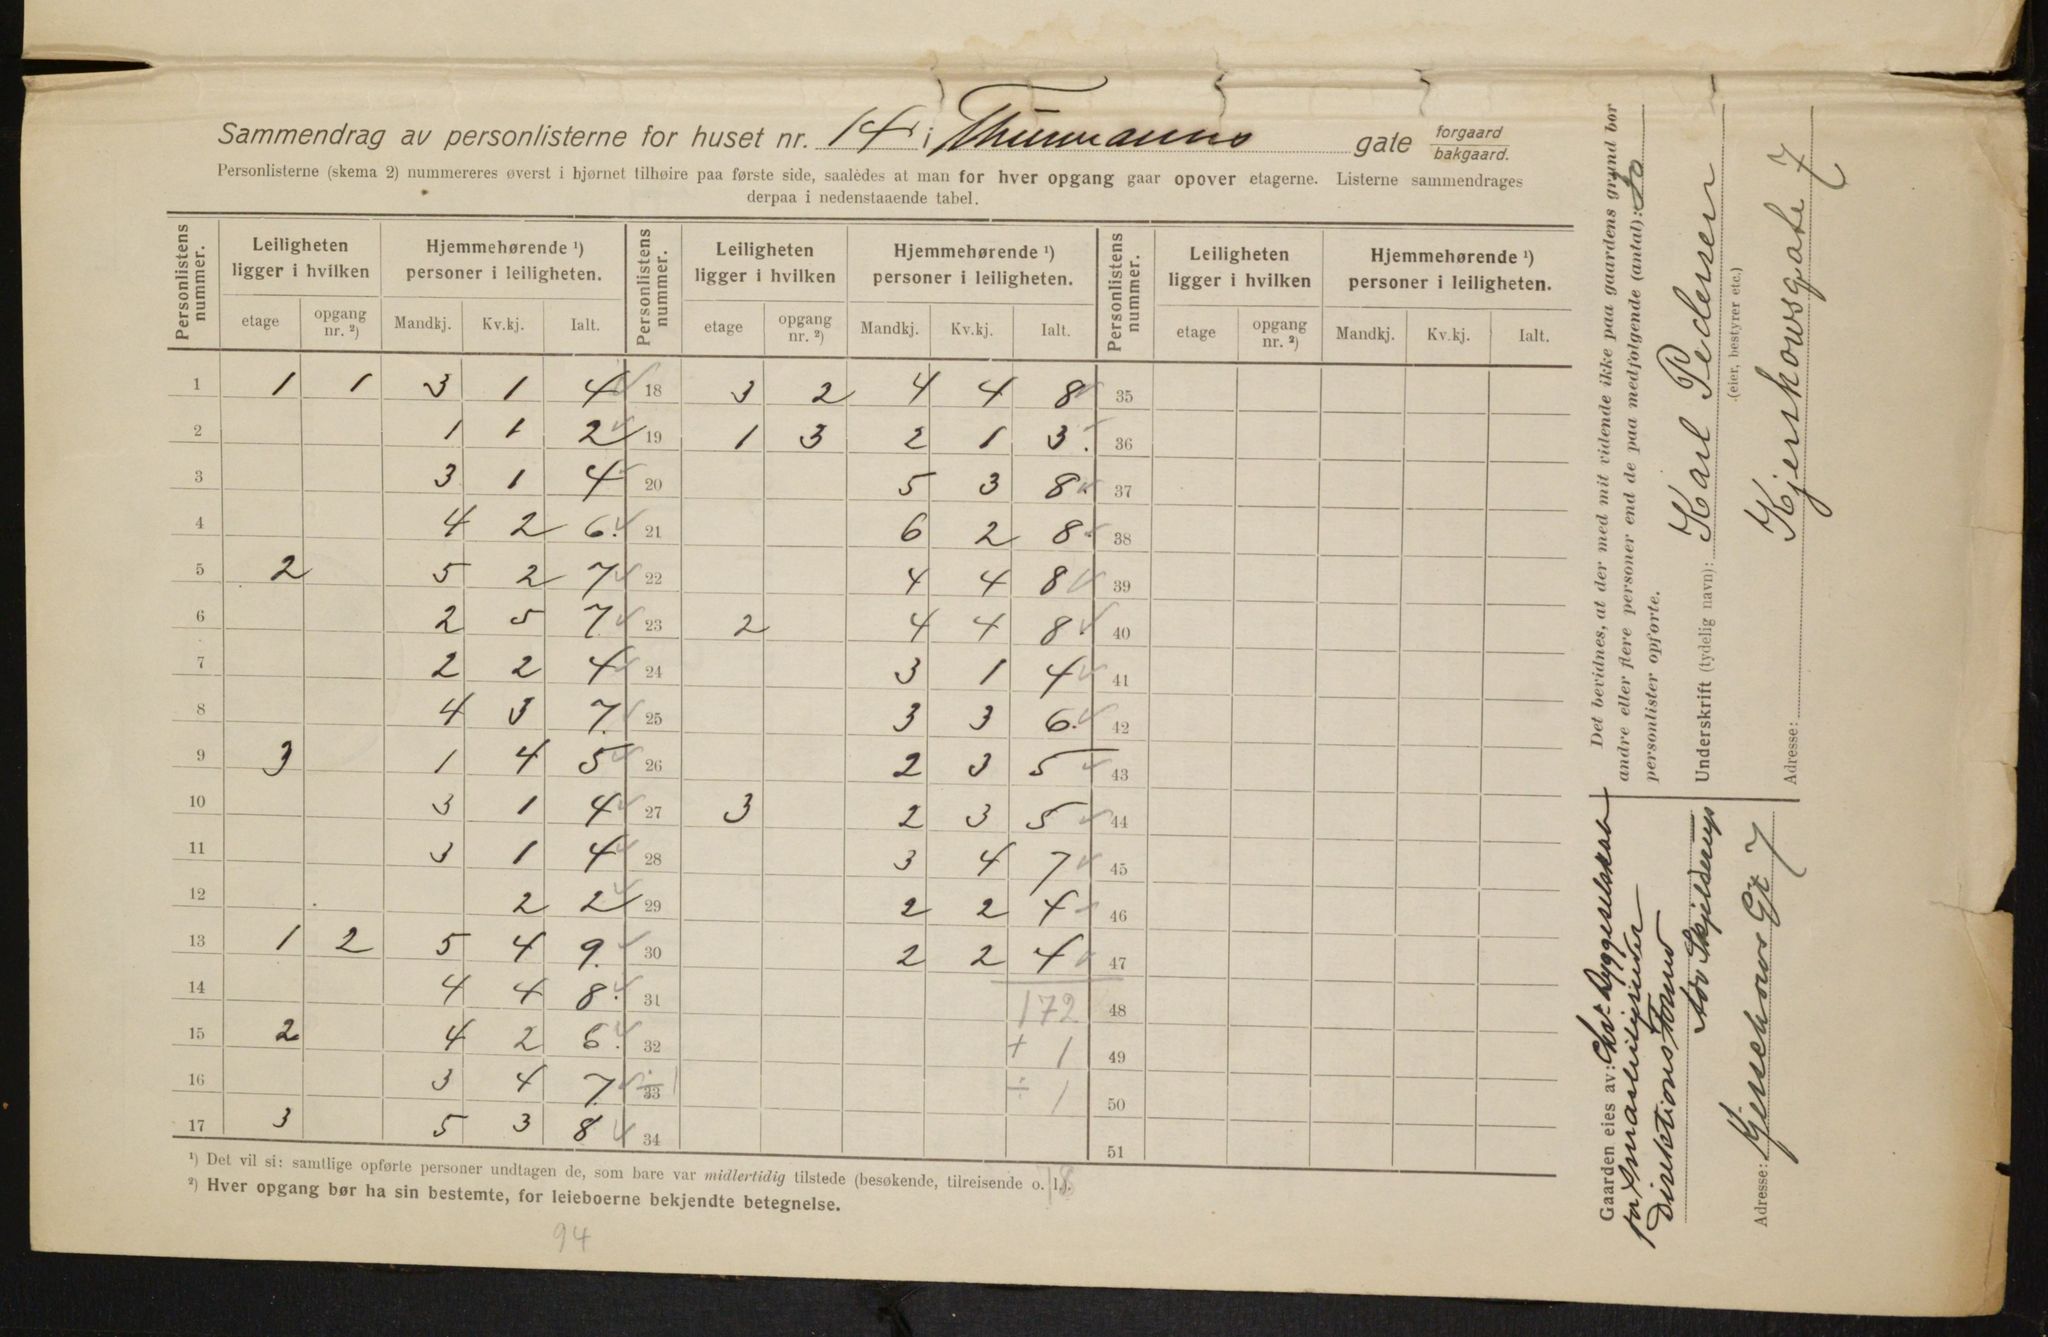 Sammendrag av personlisterne for huset nr. 14 i Thurmanns gate forgaard bakgaard.
Personlisterne (skema 2) nummereres øverst i hjørnet tilhøire paa første side, saaledes at man for hver opgang gaar opover etagerne. Listerne sammendrages
derpaa i nedenstaaende tabel.
Personlistens nummer. Leiligheten ligger i hvilken Hjemmehørende ¹) personer i leiligheten. Personlistens nummer. Leiligheten ligger i hvilken Hjemmehørende ¹) personer i leiligheten. Personlistens nummer. Leiligheten ligger i hvilken Hjemmehørende ¹) personer i leiligheten.
etage opgang nr. ²) Mandkj. Kv.kj. Ialt. etage opgang nr. ²) Mandkj. Kv.kj. Ialt. etage opgang nr. ²) Mandkj. Kv.kj. Ialt.
1 1 1 3 1 4 18 3 2 4 4 8 35
2 1 1 2 19 1 3 2 1 3. 36
3 3 1 4 20 5 3 8 37
4 4 2 6. 21 6 2 8 38
5 2 5 2 7 22 4 4 8 39
6 2 5 7. 23 2 4 4 8 40
7 2 2 4 24 3 1 4 41
8 4 3 7. 25 3 3 6. 42
9 3 1 4 5 26 2 3 5 43
10 3 1 4 27 3 2 3 5 44
11 3 1 4 28 3 4 7 45
12 2 2 29 2 2 4 46
13 1 2 5 4 9. 30 2 2 4 47
14 4 4 8. 31 172 48
15 2 4 2 6. 32 + 1 49
16 3 4 7. 33 ÷ 1 ÷ 1 50
17 3 5 3 8 34 51
¹) Det vil si: samtlige opførte personer undtagen de, som bare var midlertidig tilstede (besøkende, tilreisende o. l.).
²) Hver opgang bør ha sin bestemte, for leieboerne bekjendte betegnelse.
94
Det bevidnes, at der med mit vidende ikke paa gaardens grund bor
andre eller flere personer end de paa medfølgende (antal): 30
personlister opførte.
Underskrift (tydelig navn): Karl Pedersen
(eier, bestyrer etc.)
Adresse: Kjerskowsgate 7
Gaarden eies av: Chr. Byggeselskab
for Smaaleiligheter
Direktions Formd
Adv Skjelderup
Adresse: Kjerschows Gt 7